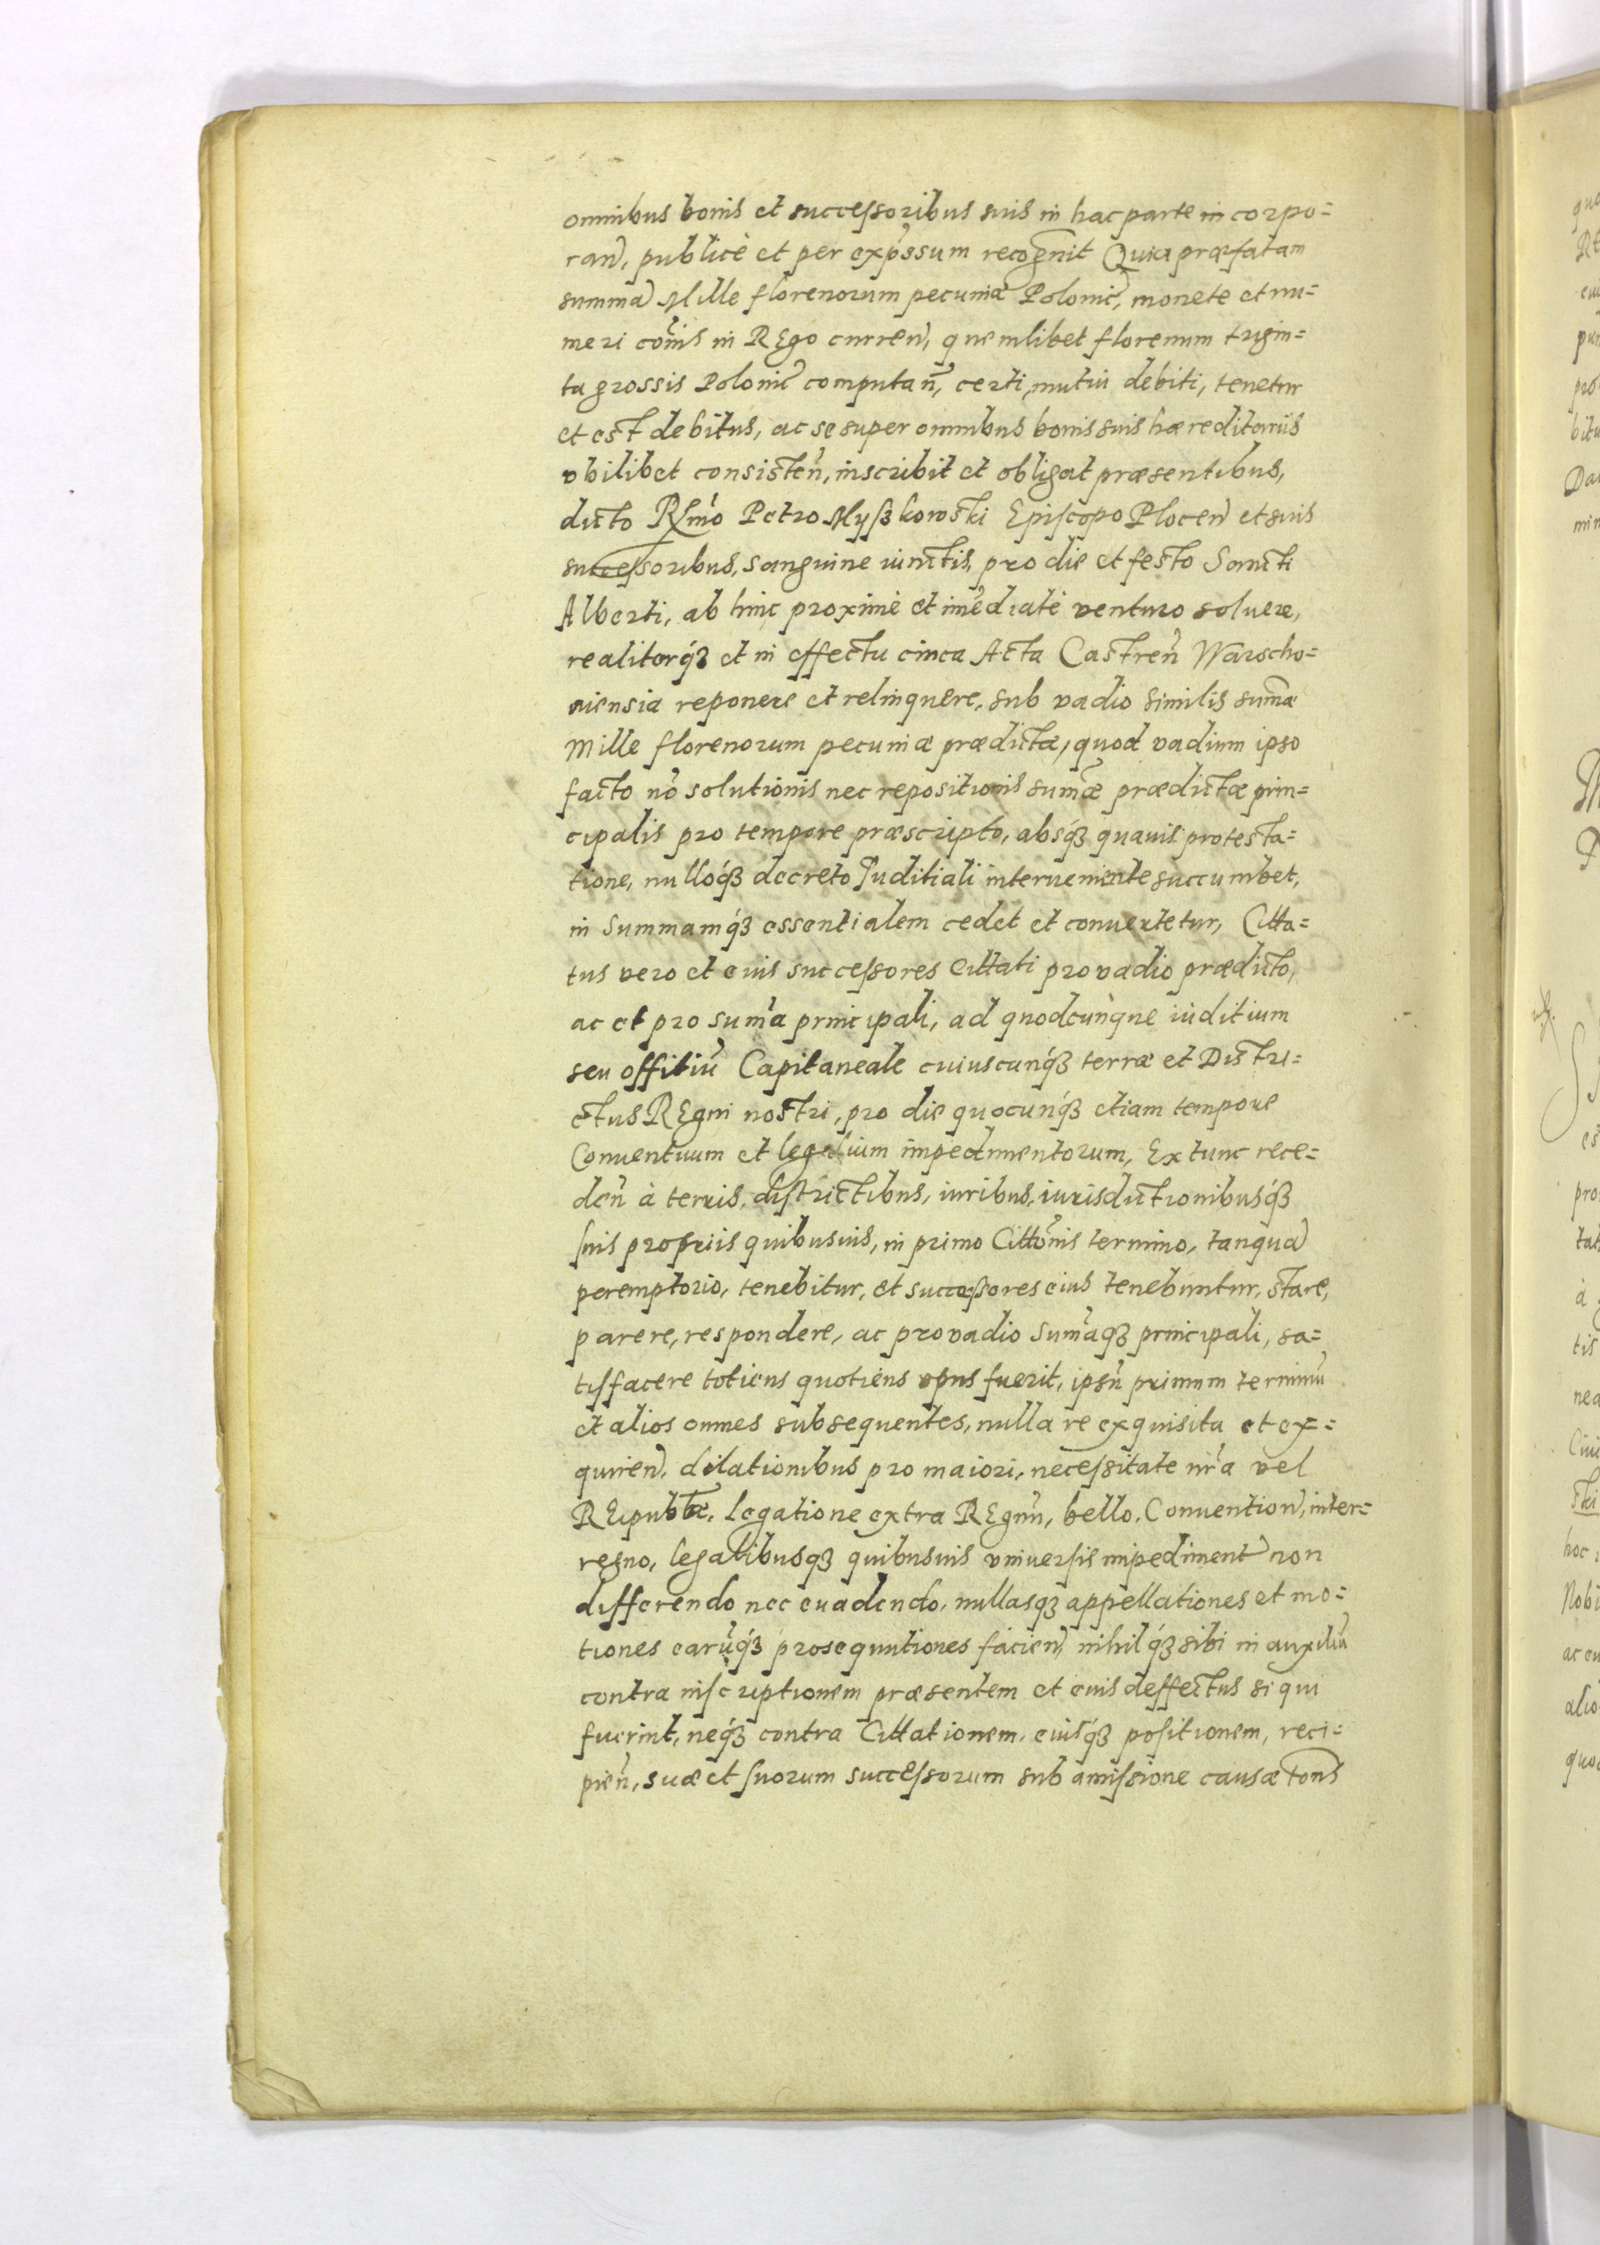 omnibus bonis et successoribus suis in hac parte in corpo=
ran̄, publicè et per exp̃ssum recognit Quia præfatam
summã Mille florenorum pecuniæ Polonic̃, monete et nu=
meri cõis in REgo curren̄, quemlibet florenum trigin=
ta grossis Polonic̃ computan̄, certi, mutui debiti, tenetur
et est debitus, ac se super omnibus bonis suis hæreditariis
vbilibet consisten̄, inscribit et obligat præsentibus,
dicto Rl̃mo Petro Myſzkowski Epiſcopo Plocen̄ et suis
succeſsoribus, sanguine iunctis, pro die et festo Sancti
Alberti, ab hinc proximè et imẽdiatè venturo soluere,
realiterq́ꝫ et in effectu circa Acta Castren̄ Warscho=
uiensia reponere et relinquere, sub vadio similis sum̃æ
Mille florenorum pecuniæ prædictæ, quod vadium ipso
facto nõ solutionis nec repositionis sum̃æ prædictæ prin=
cipalis pro tempore præscripto, absq́ꝫ quauis protesta=
tione, nulloq́ꝫ decreto Juditiali interueniente succumbet,
in Summamq́ꝫ essentialem cedet et conuertetur, Citta=
tus vero et eius succeſsores Cittati pro vadio prædicto,
ac et pro sum̃a principali, ad quodcunque iuditium
seu offitiũ Capitaneale cuiuscunq́ꝫ terræ et Distri=
ctus REgni nostri, pro die quocunq́ꝫ etiam tempore
Conuentuum et legalium impedimentorum, Ex tunc rece=
den̄ à terris, diſtrictibus, iuribus, iurisdictionibusq́ꝫ
ſuis propriis quibusuis, in primo Citto͠nis termino, tanquã
peremptorio, tenebitur, et succeſsores eius tenebuntur, stare,
parere, respondere, ac pro vadio Sum̃aqꝫ principali, sa=
tiſfacere totiens quotiens opus fuerit, ipsũ primum terminũ
et alios omnes subsequentes, nulla re exquisita et ex=
quiren̄, dilationibus pro maiori, neceſsitate nr̃a vel
REipubl̃æ, legatione extra REgnũ, bello, Conuention̄, inter=
regno, legalibusqꝫ quibusuis vniuerſis impediment̃ non
differendo nec euadendo, nullasqꝫ appellationes et mo=
tiones earũq́ꝫ prosequutiones facien̄ nihilq́ꝫ sibi in auxiliũ
contra inſcriptionem præsentem et eius deffectus si qui
fuerint, neq́ꝫ contra Cittationem, eiusq́ꝫ poſitionem, reci=
pien̄, suæ et ſuorum succeſsorum sub amiſsione causæ to͠nis